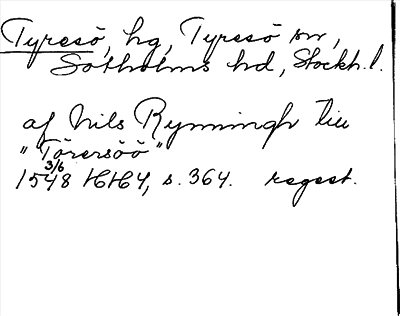 Tyresö, hg, Tyresö sn,
Sotholms hd, Stockh. l.
af Nils Rynningh till
"Törersöö"
3/6
1548 HH4, s. 364. regest.